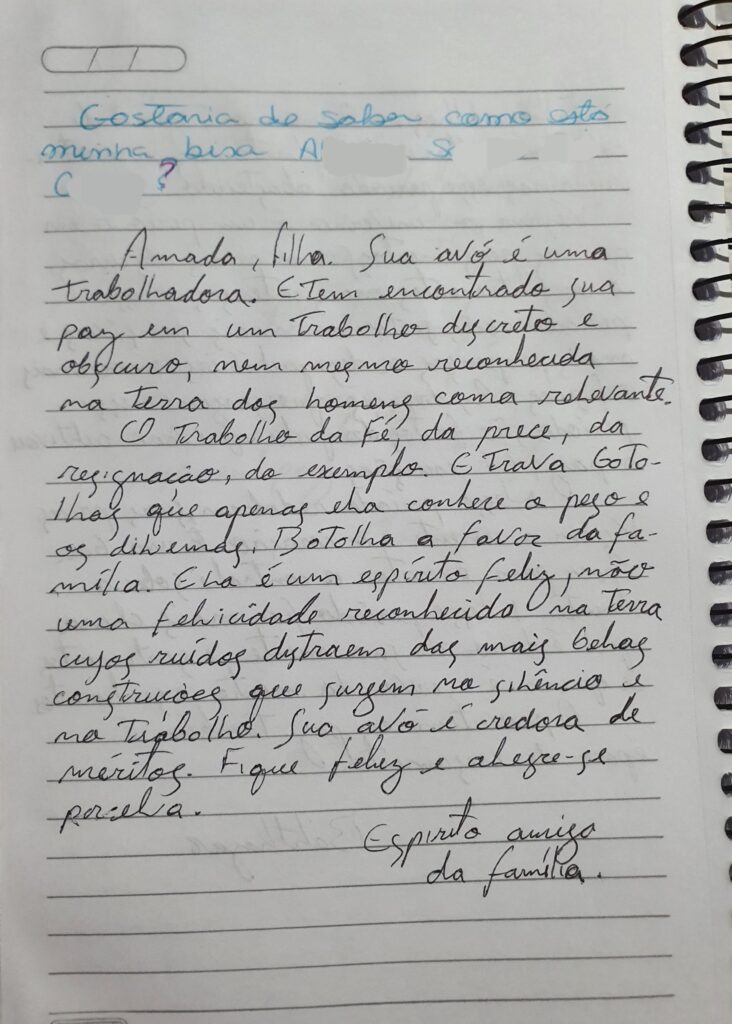 Gostaria de saber como está
minha bisa A S
C ?
Amada, filha. Sua avó é uma
trabalhadora. E tem encontrado sua
paz em um trabalho discreto e
obscuro, nem mesmo reconhecida
na terra dos homens como relevante.
O trabalho da Fé, da prece, da
resignação, do exemplo. E trava bota-
lhas que apenas ela conhece o peso e
os dilemas. Botolha a favor da fa-
mília. Ela é um espírito feliz, não
uma felicidade reconhecida na terra
cujos ruídos distraem das mais belas
construções que surgem no silêncio e
no trabalho. Sua avó é credora de
méritos. Fique feliz e alegre-se
por ela.
Espírito amigo
da família.